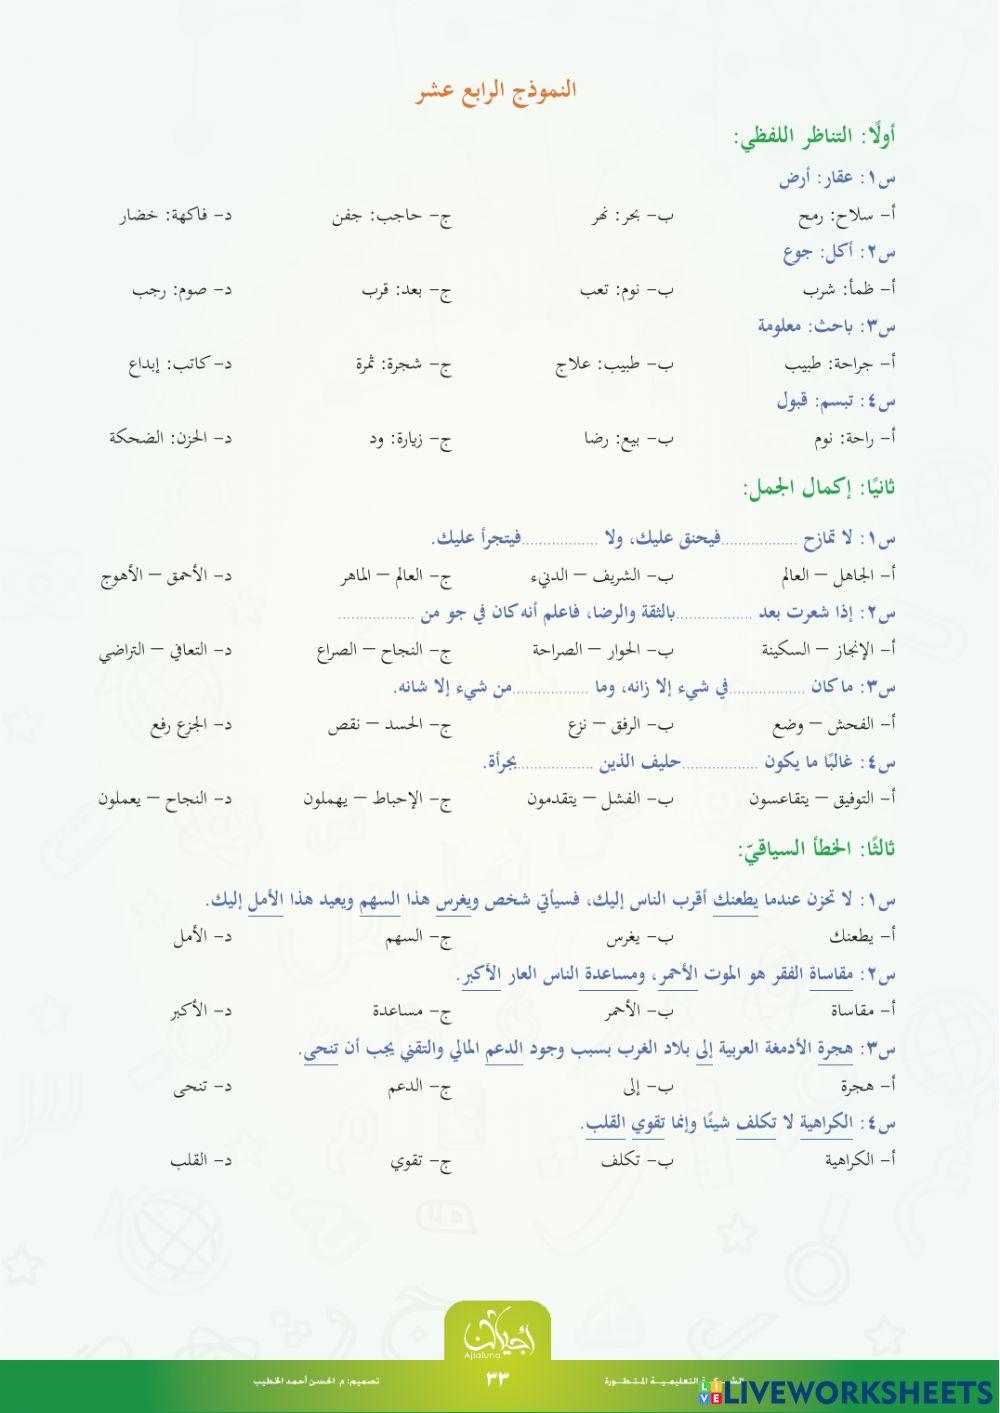 النموذج الرابع عشر
أولًا: التناظر اللفظي:
س١: عقار: أرض
أ- سلاح: رمح ب- بحر: نهر ج- حاجب: جفن د- فاكهة: خضار
س٢: أكل: جوع
أ- ظمأ: شرب ب- نوم: تعب ج- بعد: قرب د- صوم: رجب
س٣: باحث: معلومة
أ- جراحة: طبيب ب- طبيب: علاج ج- شجرة: ثمرة د- كاتب: إبداع
س٤: تبسم: قبول
أ- راحة: نوم ب- بيع: رضا ج- زيارة: ود د- الحزن: الضحكة
ثانيًا: إكمال الجمل:
س١: لا تمازح .................. فيحنق عليك، ولا .................. فيتجرأ عليك.
أ- الجاهل – العالم ب- الشريف – الدنيء ج- العالم – الماهر د- الأحمق – الأهوج
س٢: إذا شعرت بعد .................. بالثقة والرضا، فاعلم أنه كان في جو من ..................
أ- الإنجاز – السكينة ب- الحوار – الصراحة ج- النجاح – الصراع د- التعافي – التراضي
س٣: ما كان .................. في شيء إلا زانه، وما .................. من شيء إلا شانه.
أ- الفحش – وضع ب- الرفق – نزع ج- الحسد – نقص د- الجزع رفع
س٤: غالبًا ما يكون .................. حليف الذين .................. بجرأة.
أ- التوفيق – يتقاعسون ب- الفشل – يتقدمون ج- الإحباط – يهملون د- النجاح – يعملون
ثالثًا: الخطأ السياقيّ:
س١: لا تحزن عندما يطعنك أقرب الناس إليك، فسيأتي شخص ويغرس هذا السهم ويعيد هذا الأمل إليك.
أ- يطعنك ب- يغرس ج- السهم د- الأمل
س٢: مقاساة الفقر هو الموت الأحمر، ومساعدة الناس العار الأكبر.
أ- مقاساة ب- الأحمر ج- مساعدة د- الأكبر
س٣: هجرة الأدمغة العربية إلى بلاد الغرب بسبب وجود الدعم المالي والتقني يجب أن تنحى.
أ- هجرة ب- إلى ج- الدعم د- تنحى
س٤: الكراهية لا تكلف شيئًا وإنما تقوي القلب.
أ- الكراهية ب- تكلف ج- تقوي د- القلب
أجيالنا
Ajialuna
الشركة التعليمية المتطورة ٣٣ تصميم: م. الحسن أحمد الخطيب
LIVEWORKSHEETS